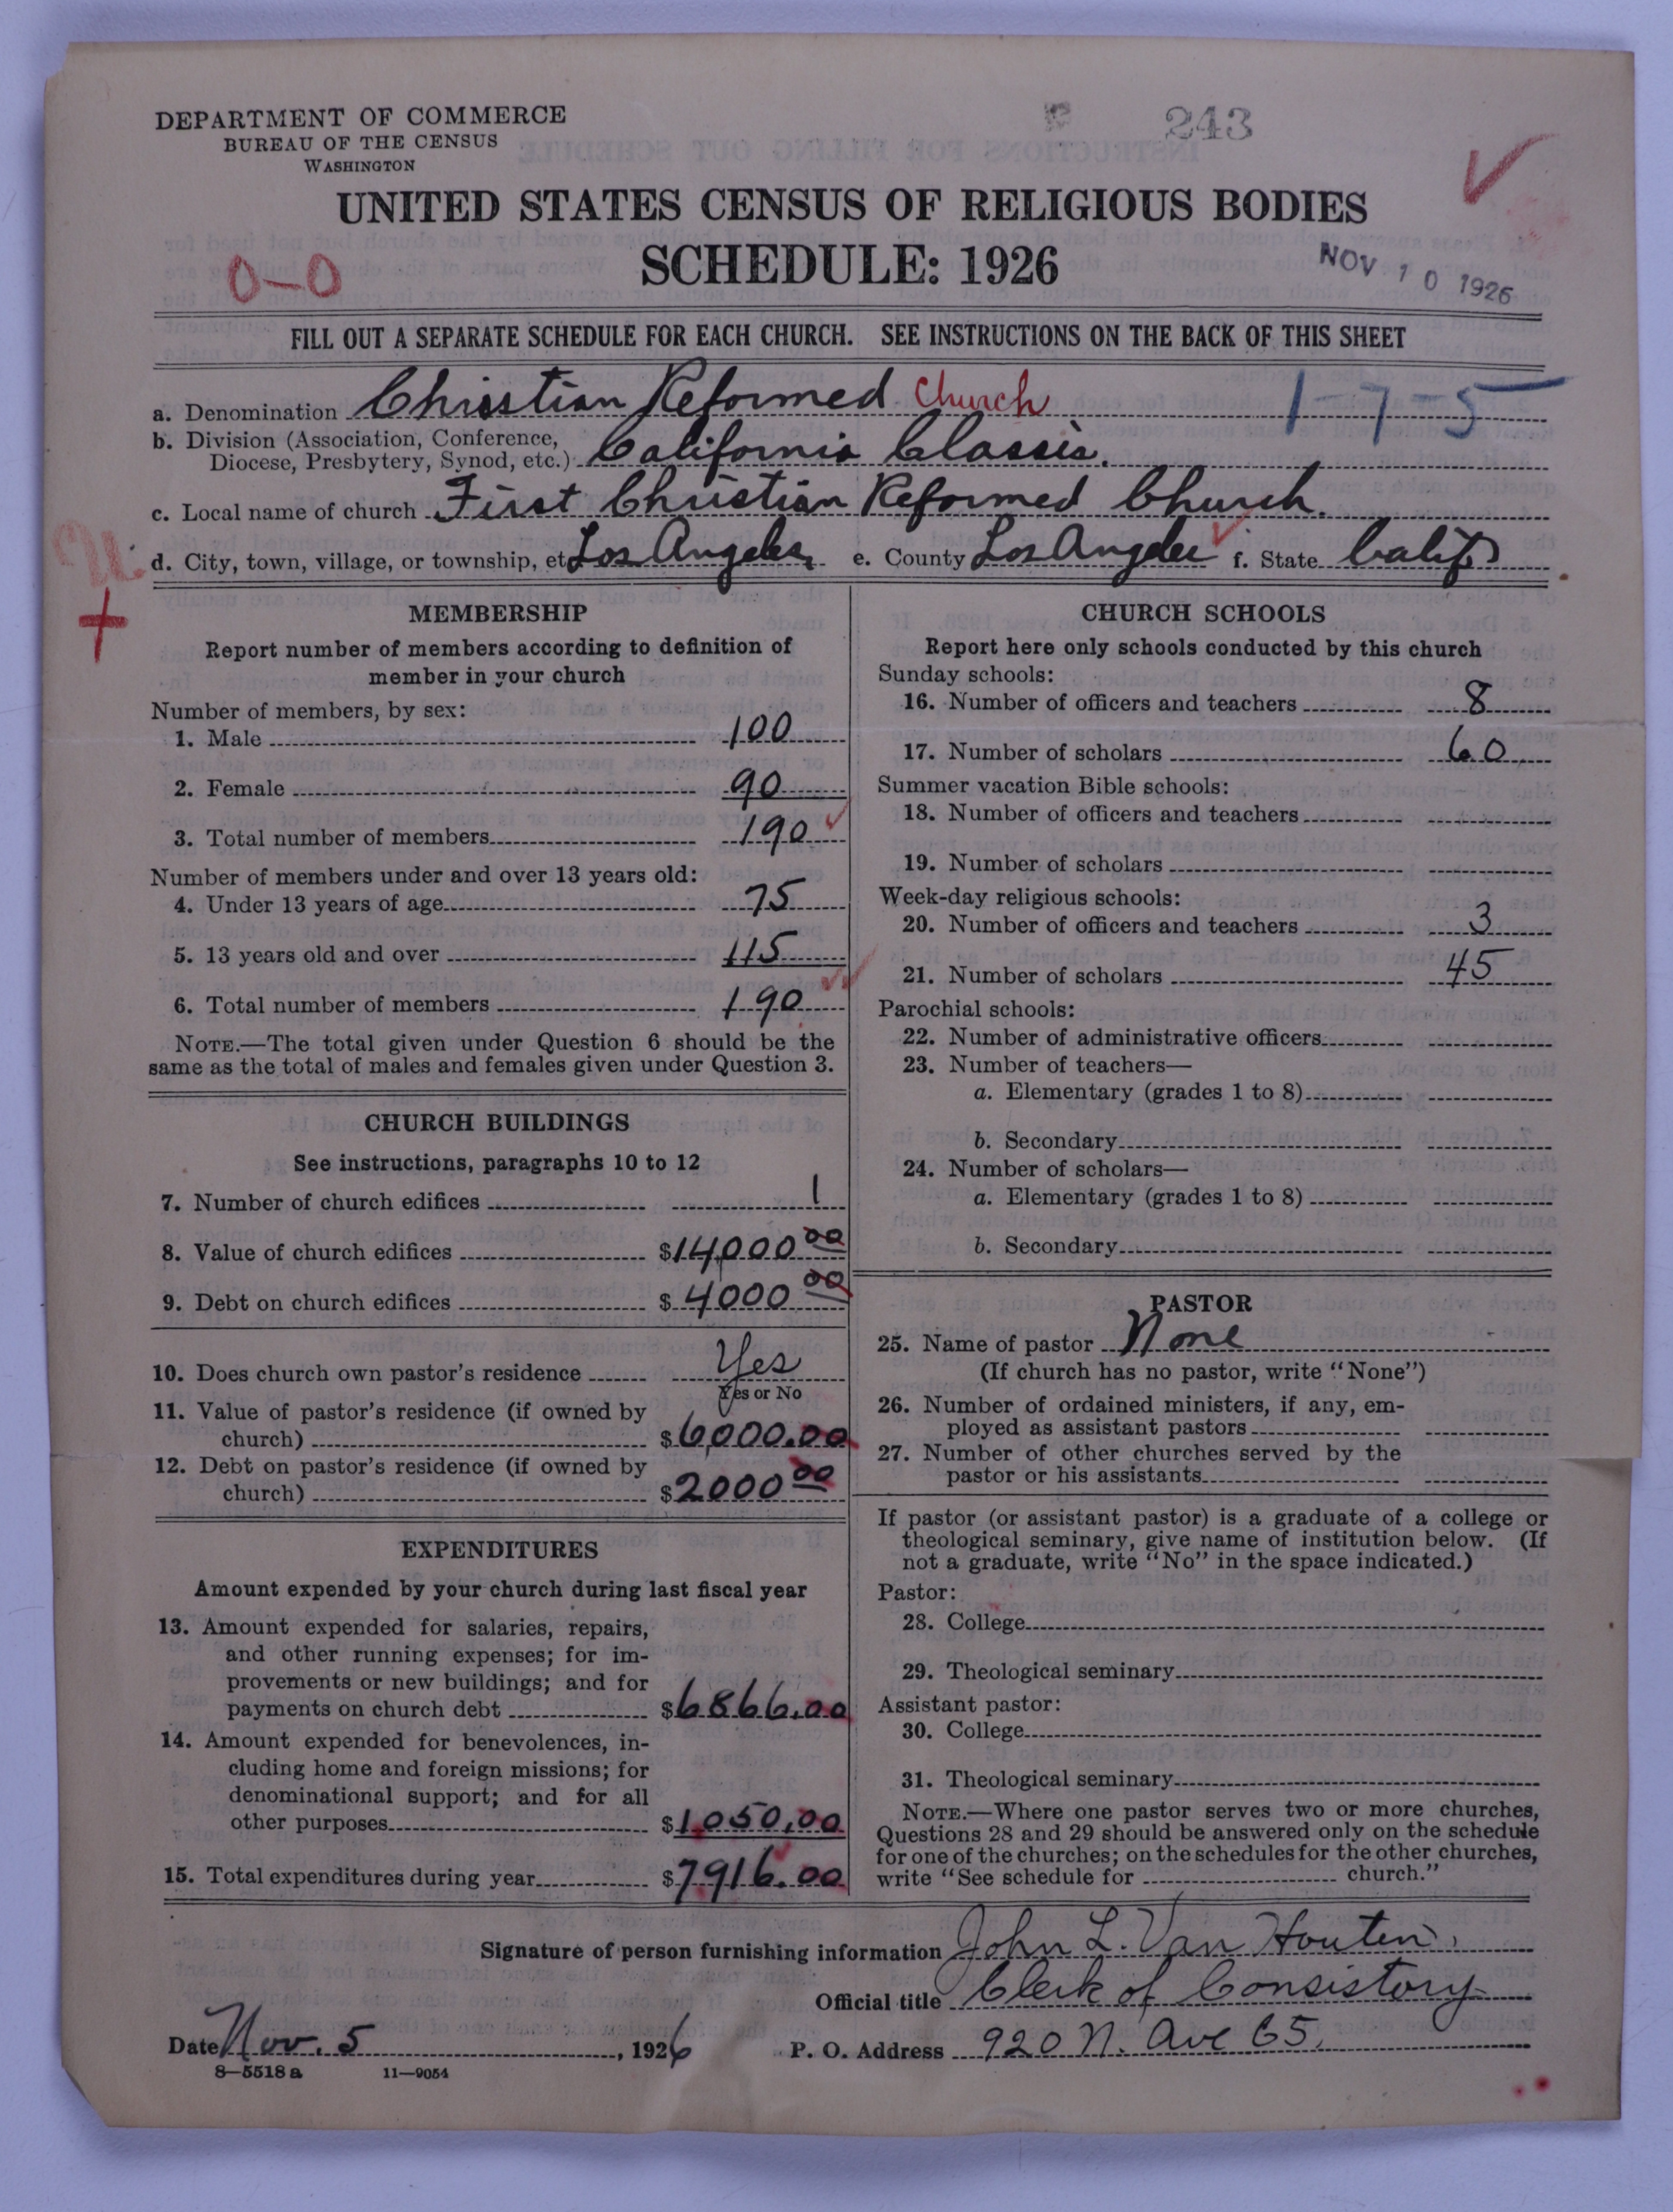 DEPARTMENT OF COMMERCE
BUREAU OF THE CENSUS
WASHINGTON
243
UNITED STATES CENSUS OF RELIGIOUS BODIES
SCHEDULE: 1926
0-0
NOV 10 1926
FILL OUT A SEPARATE SCHEDULE FOR EACH CHURCH. SEE INSTRUCTIONS ON THE BACK OF THIS SHEET
a. Denomination Christian Reformed Church 1-7-5
b. Division (Association, Conference,
Diocese, Presbytery, Synod, etc.) California Classis.
c. Local name of church First Christian Reformed Church.
d. City, town, village, or township, etc Los Angeles, e. County Los Angeles f. State Calif
MEMBERSHIP
Report number of members according to definition of
member in your church
Number of members, by sex:
1. Male 100
2. Female 90
3. Total number of members 190
Number of members under and over 13 years old:
4. Under 13 years of age 75
5. 13 years old and over 115
6. Total number of members 190
NOTE.—The total given under Question 6 should be the
same as the total of males and females given under Question 3.
CHURCH BUILDINGS
See instructions, paragraphs 10 to 12
7. Number of church edifices 1
8. Value of church edifices $14,000 00
9. Debt on church edifices $4000 00
10. Does church own pastor's residence Yes
Yes or No
11. Value of pastor's residence (if owned by
church) $6,000.00
12. Debt on pastor's residence (if owned by
church) $2000 00
EXPENDITURES
Amount expended by your church during last fiscal year
13. Amount expended for salaries, repairs,
and other running expenses; for im-
provements or new buildings; and for
payments on church debt $6866.00
14. Amount expended for benevolences, in-
cluding home and foreign missions; for
denominational support; and for all
other purposes $1,050,00
15. Total expenditures during year $7916.00
CHURCH SCHOOLS
Report here only schools conducted by this church
Sunday schools:
16. Number of officers and teachers 8
17. Number of scholars 60
Summer vacation Bible schools:
18. Number of officers and teachers
19. Number of scholars
Week-day religious schools:
20. Number of officers and teachers 3
21. Number of scholars 45
Parochial schools:
22. Number of administrative officers
23. Number of teachers—
a. Elementary (grades 1 to 8)
b. Secondary
24. Number of scholars—
a. Elementary (grades 1 to 8)
b. Secondary
PASTOR
25. Name of pastor None
(If church has no pastor, write "None")
26. Number of ordained ministers, if any, em-
ployed as assistant pastors
27. Number of other churches served by the
pastor or his assistants
If pastor (or assistant pastor) is a graduate of a college or
theological seminary, give name of institution below. (If
not a graduate, write "No" in the space indicated.)
Pastor:
28. College
29. Theological seminary
Assistant pastor:
30. College
31. Theological seminary
NOTE.—Where one pastor serves two or more churches,
Questions 28 and 29 should be answered only on the schedule
for one of the churches; on the schedules for the other churches,
write "See schedule for church."
Signature of person furnishing information John L. Van Houten.
Official title Clerk of Consistory
Date Nov. 5, 1926 P. O. Address 920 N. Ave 65.
8—5518 a 11—9054